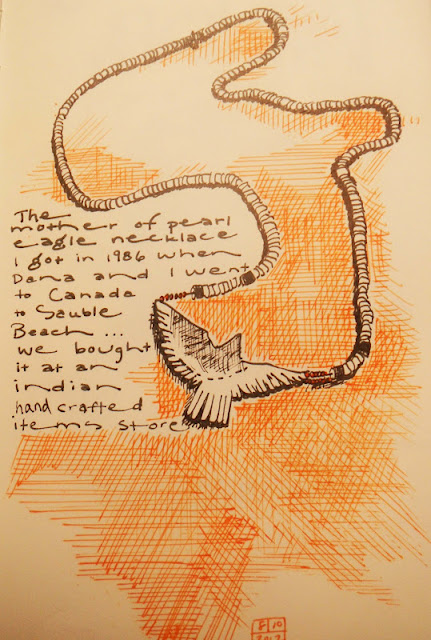 The
mother of pearl
eagle necklace
I got in 1986 when
Dana and I went
to Canada
to Sauble
Beach ...
we bought
it at an
indian
hand crafted
items store
F 10
2013